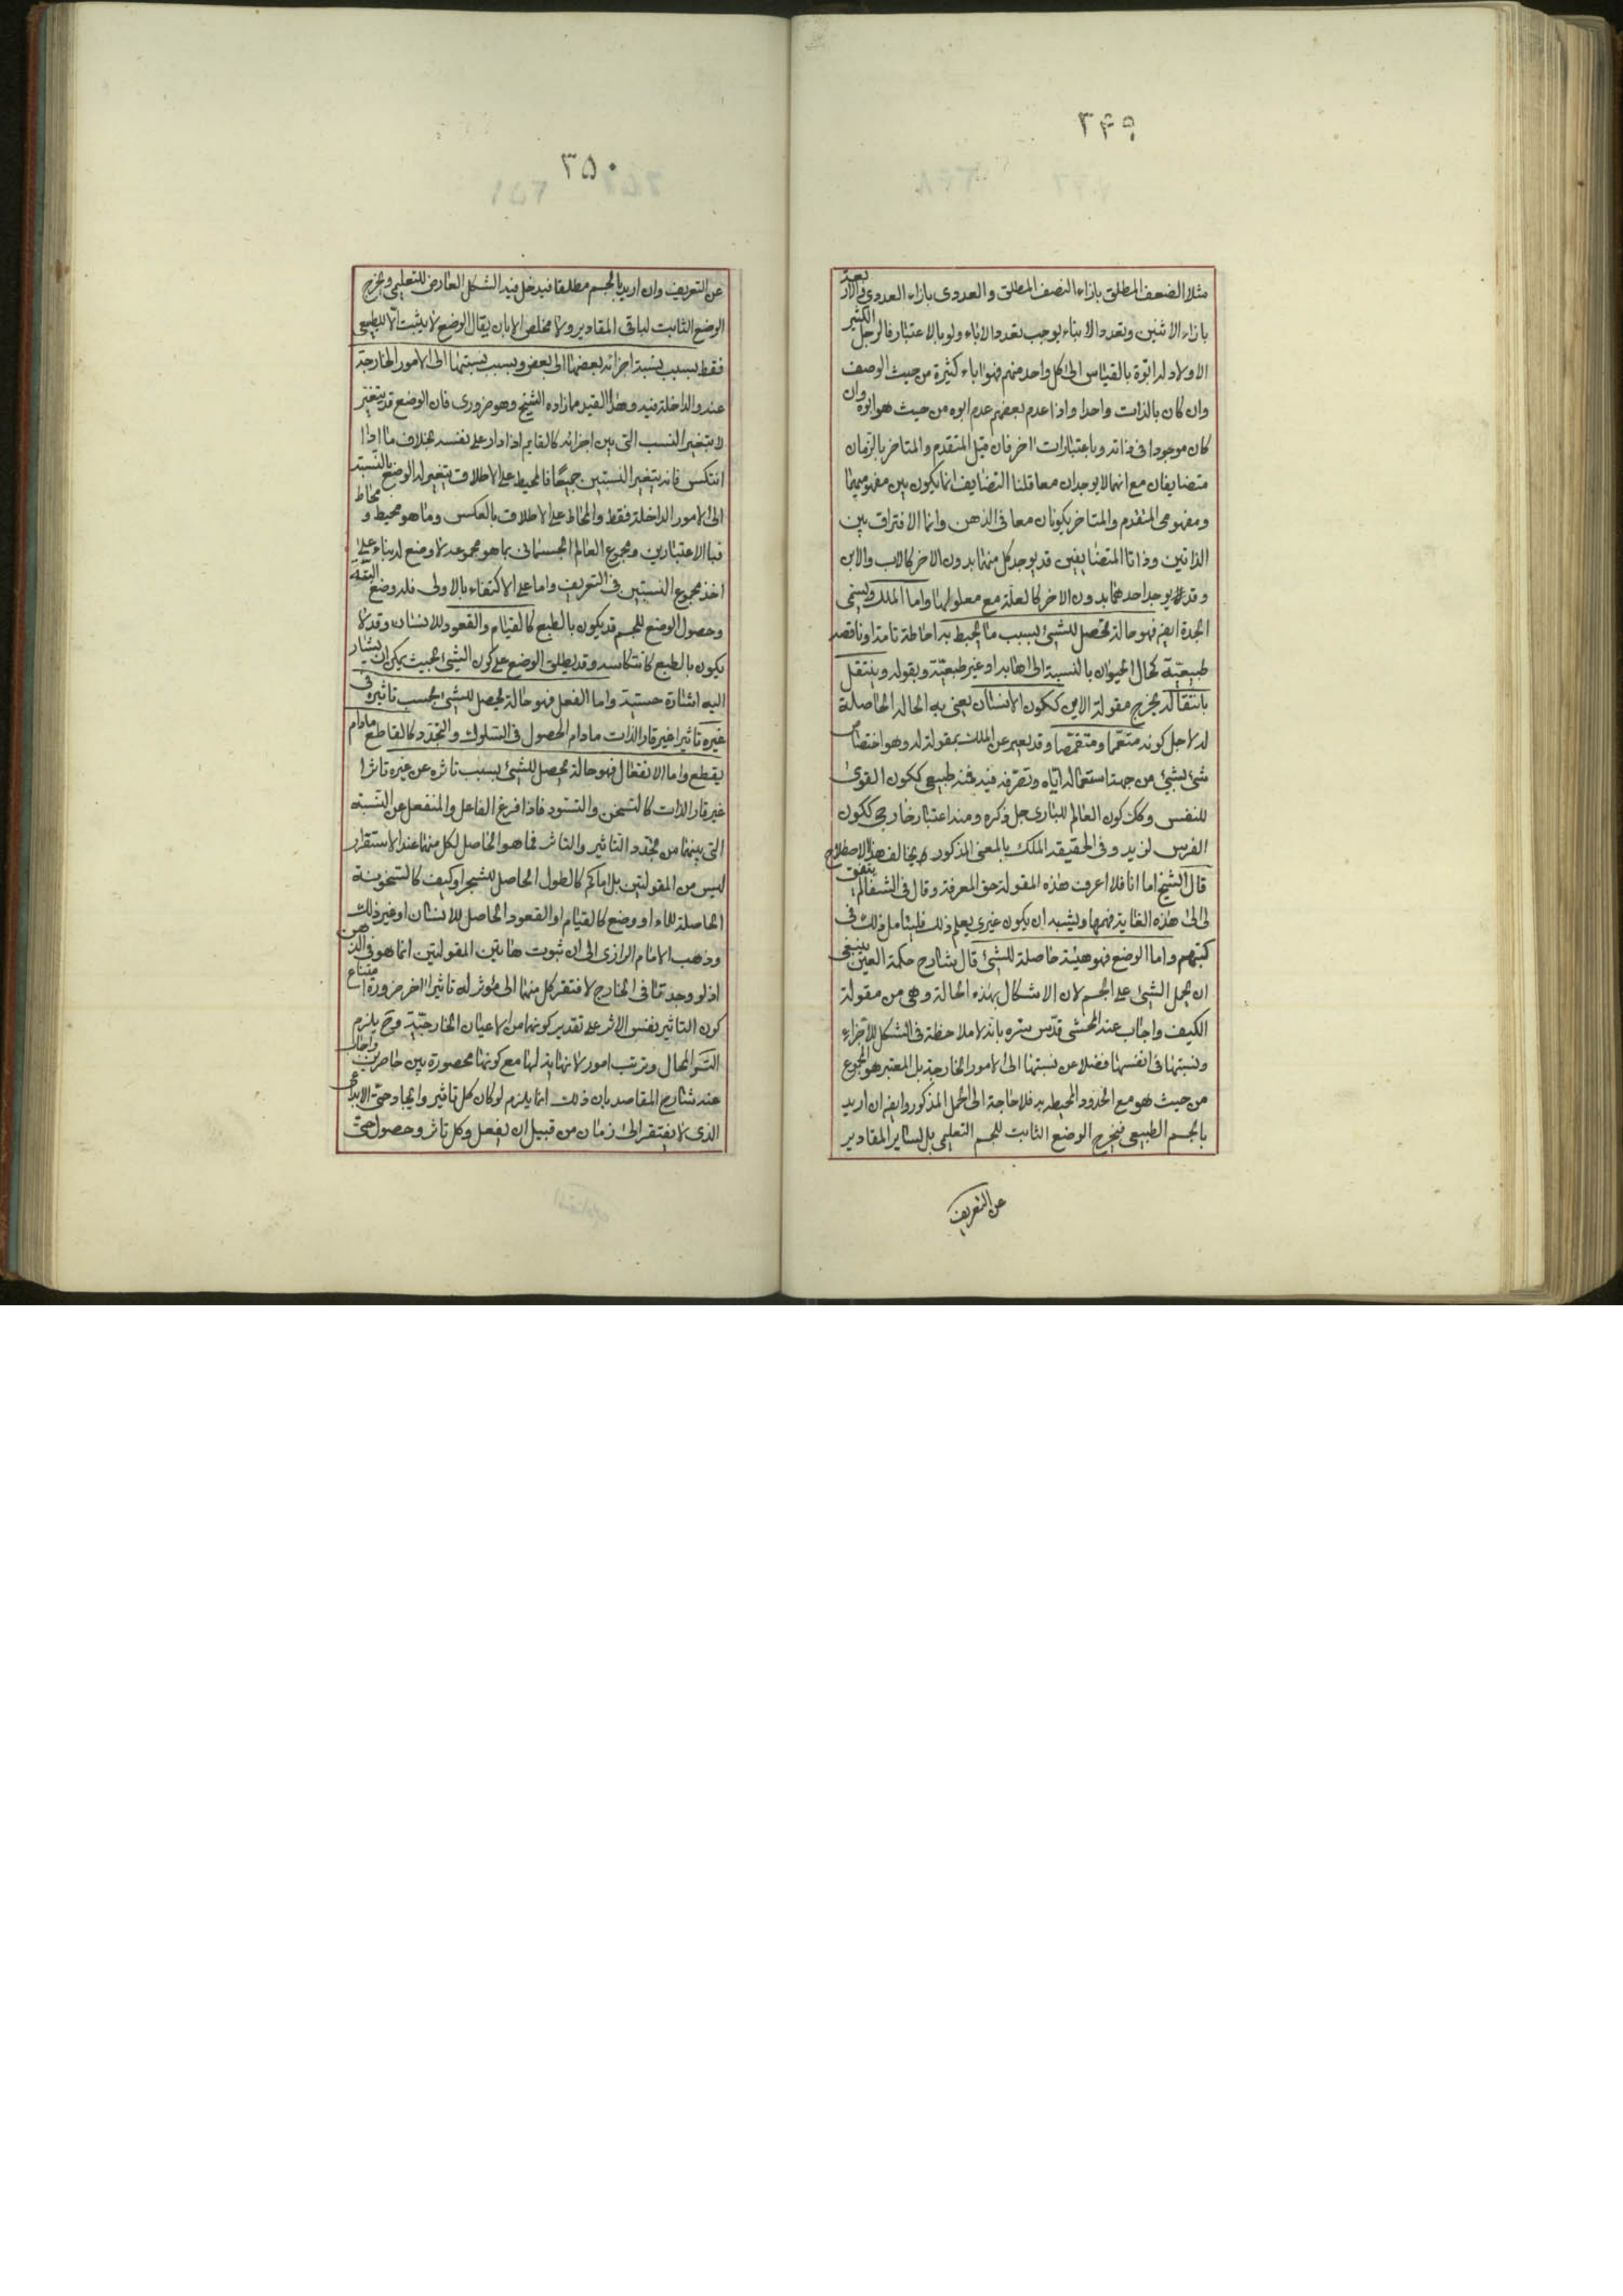 ٣۴٩
مثلا الضعف المطلق بازاء النصف المطلق والعددى بازاء العددى والاربعة
بازاء الاثنين وتعدد الابناء يوجب تعدد الاباء ولو بالاعتبار فالرجل الكثير
الاولاد له ابوة بالقياس الى كل واحد منهم فهو اباء كثيرة من حيث الوصف
وان كان بالذات واحدا واذا عدم بعضهم عدم ابوه من حيث هو ابوه وان
كان موجودا فى ذاته وباعتبارات اخر فان قيل المتقدم والمتاخر بالزمان
متضايفان مع انهما لا يوجدان معا قلنا التضايف انما يكون بين مفهوميهما
ومفهومى المتقدم والمتاخر يكونان معا فى الذهن وانما الافتراق بين
الذاتين وذاتا المتضايفين قد يوجد كل منهما بدون الاخر كالاب والابن
وقد لا يوجد احدهما بدون الاخر كالعلة مع معلولها واما الملك ويسمى
الجدة ايضا فهو حالة تحصل للشئ بسبب ما يحيط به احاطة تامة او ناقصة
طبيعية كحال الحيوان بالنسبة الى اهابه او غير طبيعية وبقوله وينتقل
بانتقاله يخرج مقولة الاين ككون الانسان يعنى به الحالة الحاصلة
له لاجل كونه متعمما ومتقمصا وقد يعبر عن الملك بمقولة له وهو اختصاص
شئ بشئ من جهة استعماله اياه وتصرفه فيه فمنه طبيعى ككون القوى
للنفس وكك كون العالم للبارى جل ذكره ومنه اعتبار خارجى ككون
الفرس لزيد وفى الحقيقة الملك بالمعنى المذكور يخالف هذا الاصطلاح
قال الشيخ اما انا فلا اعرف هذه المقولة حق المعرفة وقال فى الشفا لم يتفق
لى الى هذه الغاية فهمها ويشبه ان يكون غيرى يعلم ذلك فليتامل ذلك فى
كتبهم واما الوضع فهو هيئة حاصلة للشئ قال شارح حكمة العين ينبغى
ان يحمل الشئ على الجسم لان الاشكال بهذه الحالة وهى من مقولة
الكيف واجاب عنه المحشى قدس سره بانه لا ملاحظة فى الشكل للاجزاء
ونسبتها فى انفسها فضلا عن نسبتها الى الامور الخارجة بل المعتبر هو المجموع
من حيث هو مع الحدود المحيطة به فلا حاجة الى الحمل المذكور وايضا ان اريد
بالجسم الطبيعى فيخرج الوضع الثابت للجسم التعليمى بل لساير المقادير
عن التعريف
٣۵٠
عن التعريف وان اريد بالجسم مطلقا فيدخل فيه الشكل العارض للتعليمى ويخرج
الوضع الثابت لباقى المقادير ولا مخلص الا بان يقال الوضع لا يثبت الا للطبيعى
فقط بسبب نسبة اجزائه بعضها الى بعض وبسبب نسبتها الى الامور الخارجة
عنه والداخلة فيه وهذا القيد مما زاده الشيخ وهو ضرورى فان الوضع قد يتغير
لا بتغير النسب التى بين اجزائه كالقايم اذا دار على نفسه بخلاف ما اذا
انتكس فانه يتغير النسبتين جميعا فالمحيط على الاطلاق يتغير له الوضع بالنسبة
الى الامور الداخلة فقط والمحاط على الاطلاق بالعكس وما هو محيط ومحاط
فبا الاعتبارين ومجموع العالم الجسمانى بما هو مجموعه لا وضع له بناء على
اخذ مجموع النسبتين فى التعريف واما على الاكتفاء بالاولى فله وضع البتة
وحصول الوضع للجسم قد يكون بالطبع كالقيام والقعود للانسان وقد لا
يكون بالطبع كانتكاسه وقد يطلق الوضع على كون الشئ بحيث يمكن ان يشار
اليه اشارة حسية واما الفعل فهو حالة يحصل للشئ بحسب تاثيره فى
غيره تاثيرا غير قار الذات مادام الحصول فى السلوك والتجدد كالقاطع مادام
يقطع واما الانفعال فهو حالة يحصل للشئ بسبب تاثره عن غيره تاثرا
غير قار الذات كالتسخن والتسود فاذا فرغ الفاعل والمنفعل عن النسبة
التى بينهما من تجدد التاثير والتاثر فما هو الحاصل لكل منهما عند الاستقرار
ليس من المقولتين بل اما كم كالطول الحاصل للشجر او كيف كالسخونة
الحاصلة للماء او وضع كالقيام او القعود الحاصل للانسان او غير ذلك
وذهب الامام الرازى الى ان ثبوت هاتين المقولتين انما هو فى الذهن
اذ لو وجدتا فى الخارج لافتقر كل منهما الى مؤثر له تاثيرا اخر ضرورة امتناع
كون التاثير نفس الاثر على تقدير كونهما من الاعيان الخارجية وح يلزم
التس المحال وترتب امور لا نهاية لها مع كونها محصورة بين حاصرين واجاب
عنه شارح المقاصد بان ذلك انما يلزم لو كان كل تاثير وايجاد حتى الابداعى
الذى لا يفتقر الى زمان من قبيل ان يفعل وكل تاثر وحصول حتى